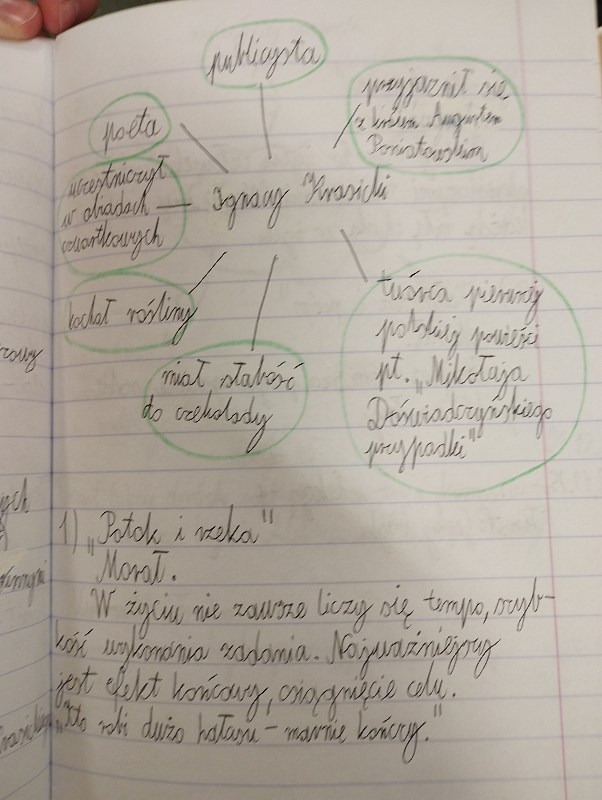 publicysta
przyjaźnił się
z królem Augustem
Poniatowskim
poeta
uczestniczył
w obiadach
czwartkowych
Ignacy Krasicki
kochał rośliny
miał słabość
do czekolady
twórca pierwszej
polskiej powieści
pt. „Mikołaja
Doświadczyńskiego
przypadki"
1) „Potok i rzeka"
Morał.
W życiu nie zawsze liczy się tempo, szyb-
kość wykonania zadania. Najważniejszy
jest efekt końcowy, osiągnięcie celu.
„Kto robi dużo hałasu – marnie kończy."